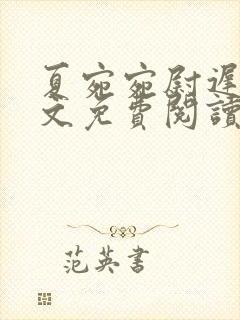 夏宛宛尉遲
文免費閱讀
范英書